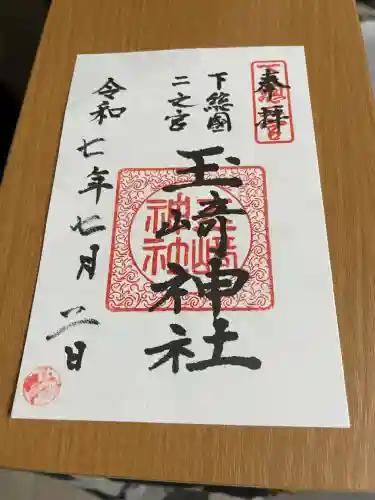 奉拝
下総國
二之宮
玉﨑神社
玉﨑
神社
令和七年七月二日